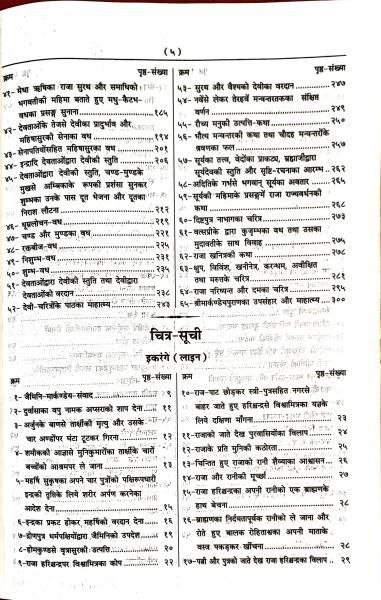 ( ५ )
क्रम पृष्ठ-संख्या
४१- मेधा ऋषिका राजा सुरथ और समाधिको
भगवतीकी महिमा बताते हुए मधु-कैटभ-
वधका प्रसङ्ग सुनाना ... १८५
४२- देवताओंके तेजसे देवीका प्रादुर्भाव और
महिषासुरकी सेनाका वध ... १९४
४३- सेनापतियोंसहित महिषासुरका वध ... २०१
४४- इन्द्रादि देवताओंद्वारा देवीकी स्तुति ... २०६
४५- देवताओंद्वारा देवीकी स्तुति, चण्ड-मुण्डके
मुखसे अम्बिकाके रूपकी प्रशंसा सुनकर
शुम्भका उनके पास दूत भेजना और दूतका
निराश लौटना ... २१२
४६- धूम्रलोचन-वध ... २१९
४७- चण्ड और मुण्डका वध ... २२१
४८- रक्तबीज-वध ... २२५
४९- निशुम्भ-वध ... २३१
५०- शुम्भ-वध ... २३५
५१- देवताओंद्वारा देवीकी स्तुति तथा देवीद्वारा
देवताओंको वरदान ... २३८
५२- देवी-चरित्रोंके पाठका माहात्म्य ... २४३
क्रम पृष्ठ-संख्या
५३- सुरथ और वैश्यको देवीका वरदान ... २४७
५४- नवेंसे लेकर तेरहवें मन्वन्तरतकका संक्षिप्त
वर्णन ... २४९
५५- रौच्य मनुकी उत्पत्ति-कथा ... २५०
५६- भौत्य मन्वन्तरकी कथा तथा चौदह मन्वन्तरोंके
श्रवणका फल ... २५७
५७- सूर्यका तत्त्व, वेदोंका प्राकट्य, ब्रह्माजीद्वारा
सूर्यदेवकी स्तुति और सृष्टि-रचनाका आरम्भ ... २६२
५८- अदितिके गर्भसे भगवान् सूर्यका अवतार ... २६५
५९- सूर्यकी महिमाके प्रसङ्गमें राजा राज्यवर्धनकी
कथा ... २६८
६०- दिष्टपुत्र नाभागका चरित्र ... २७३
६१- वत्सप्रीके द्वारा कुजृम्भका वध तथा उसका
मुदावतीके साथ विवाह ... २७५
६२- राजा खनित्रकी कथा ... २७८
६३- क्षुप, विविंश, खनीनेत्र, करन्धम, अवीक्षित
तथा मरुत्तके चरित्र ... २८१
६४- राजा नरिष्यन्त और दमका चरित्र ... २९५
६५- श्रीमार्कण्डेयपुराणका उपसंहार और माहात्म्य ... ३००
चित्र-सूची
इकरंगे (लाइन)
क्रम पृष्ठ-संख्या
१- जैमिनि-मार्कण्डेय-संवाद ... ९
२- दुर्वासाका वपु नामक अप्सराको शाप देना ... ११
३- अर्जुनके बाणसे तार्क्षीकी मृत्यु और उसके
चार अण्डोंपर घंटा टूटकर गिरना ... १२
४- शमीककी आज्ञासे मुनिकुमारोंका तार्क्षीके चारों
बच्चोंको आश्रमपर ले जाना ... १३
५- महर्षि सुकृषका अपने चार पुत्रोंको पक्षिरूपधारी
इन्द्रकी तृप्तिके लिये शरीर अर्पण करनेका
आदेश देना ... १५
६- इन्द्रका प्रकट होकर महर्षिको वरदान देना ... १६
७- द्रोणपुत्र धर्मपक्षियोंद्वारा जैमिनिको उपदेश ... १९
८- होमकुण्डसे वृत्रासुरकी उत्पत्ति ... २०
९- राजा हरिश्चन्द्रपर विश्वामित्रका कोप ... २२
क्रम पृष्ठ-संख्या
१०- राज-पाट छोड़कर स्त्री-पुत्रसहित नगरसे
बाहर जाते हुए हरिश्चन्द्रसे विश्वामित्रका यज्ञके
लिये दक्षिणा माँगना ... २३
११- राजाको जाते देख पुरवासियोंका विलाप ... २४
१२- राजाके प्रति मुनिकी कठोरता ... २५
१३- चिन्तित हुए राजाको रानी शैव्याका आश्वासन ... २६
१४- राजा और रानीकी मूर्च्छा ... २७
१५- राजा हरिश्चन्द्रका अपनी रानीको एक ब्राह्मणके
हाथ बेचना ... २८
१६- ब्राह्मणका निर्दयतापूर्वक रानीको ले जाना और
रोते हुए बालक रोहिताश्वका अपनी माताके
वस्त्र पकड़कर खींचना ... २८
१७- पत्नी और पुत्रको जाते देख राजा हरिश्चन्द्रका विलाप .. २९